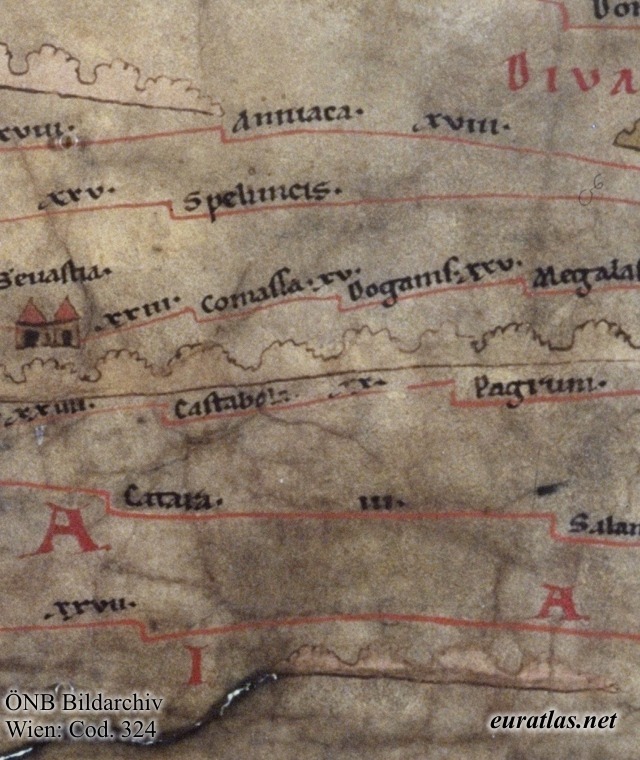 Don
DIVA
xviii. Anniaca. xviii.
xxv. Speluncis.
Sevastia.
.xxiii. Comassa. xv. Dogams. xxv. Megalas
xxiiii. Castabola. xx. Pagrum.
Citara. iii. Salam
A
A
xxvii.
I
ÖNB Bildarchiv
Wien: Cod. 324
euratlas.net